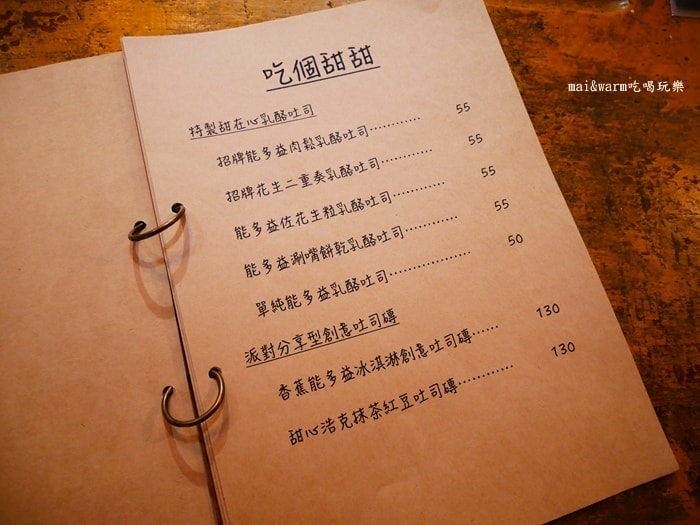 吃個甜甜
mai&warm吃喝玩樂
特製甜在心乳酪吐司
招牌能多益肉鬆乳酪吐司………… 55
招牌花生二重奏乳酪吐司………… 55
能多益佐花生粒乳酪吐司………… 55
能多益涮嘴餅乾乳酪吐司………… 55
單純能多益乳酪吐司……………… 50
派對分享型創意吐司磚
香蕉能多益冰淇淋創意吐司磚…… 130
甜心浩克抹茶紅豆吐司磚………… 130